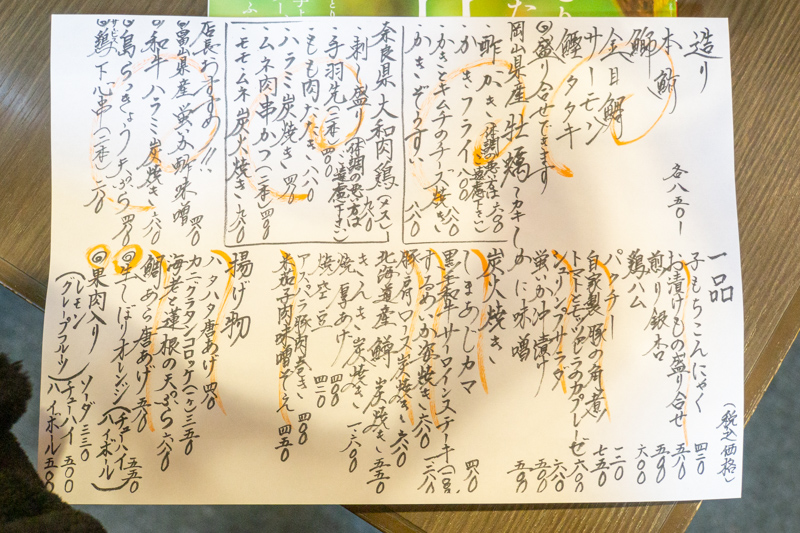 造り
本鮪
鰤
金目鯛
サーモン
鰹タタキ
各八五〇ー
◎盛り合せできます
岡山県産牡蠣〜カキ〜
・酢がき(体調の悪い方はご遠慮下さい) 六〇〇
・かきフライ 八〇〇
・かきとキムチのチーズ焼き 八八〇
・かきぞうすい
奈良県 大和肉鶏(メス)
・刺し盛り(体調の悪い方はご遠慮下さい) 九八〇
・手羽先(二本) 四〇〇
・もも肉たたき 八八〇
・ハラミ炭焼き 四八〇
・ムネ肉串かつ(二本) 四〇〇
・モモ・ムネ炭火焼き 九八〇
店長おすすめ!!
◎富山県産 蛍いか酢味噌 四八〇
◎和牛ハラミ炭焼き 六八〇
◎島らっきょう天ぷら 四八〇
◎鶏下心串(二本)
一品
(税込価格)
子もちこんにゃく 四二〇
お漬けもの盛り合せ 五八〇
煎り銀杏 五五〇
鶏ハム 六〇〇
パッチー 一二〇
自家製 豚の角煮 七五〇
トマトとモッツァレラのカプレーゼ 六〇〇
シュリンプサラダ 六八〇
蛍いか沖漬け 五〇〇
かに味噌 五五〇
炭火焼き
しまあじカマ 四八〇
黒毛和牛サーロインステーキ
するめいか炭焼き 六八〇
豚肩ロース炭焼き 六八〇
北海道産 鱒 炭焼き 五五〇
きんき炭焼き 一六〇〇
焼厚あげ 三八〇
焼空豆 四二〇
アスパラ豚肉巻き 四〇〇
米茄子肉味噌ぞえ 四五〇
揚げ物
ハタハタ唐あげ 四八〇
カニグラタンコロッケ(一ヶ) 三五〇
海老と蓮根の天ぷら 六八〇
鯛あら唐あげ 五八〇
◎生しぼりオレンジ(チューハイ ハイボール) 五五〇
◎果肉入り
(レモン グレープフルーツ)
ソーダ 三三〇
チューハイ 五〇〇
ハイボール 五〇〇